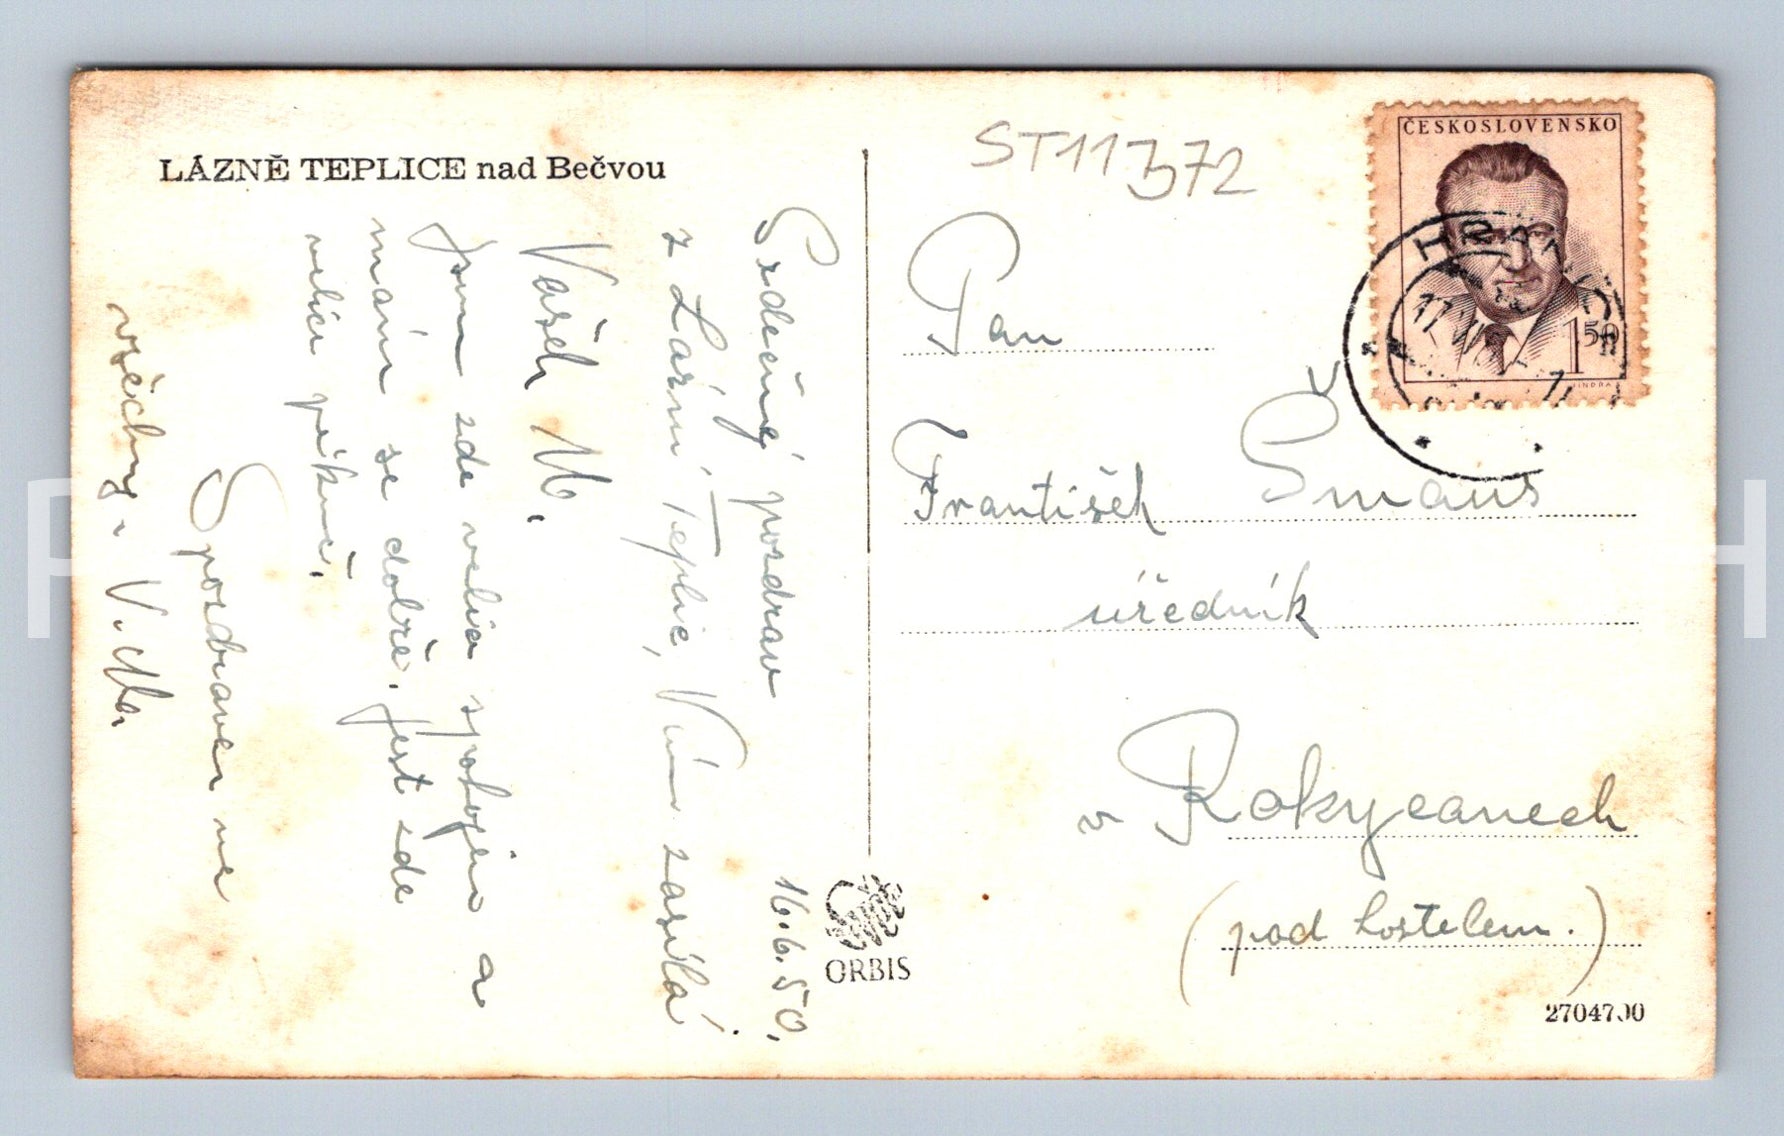 LÁZNĚ TEPLICE nad Bečvou
16.6.50.
Srdečný pozdrav
z Lázní Teplic, Vám zasílá
Vašek M.
Jsem zde velice spokojen a
mám se dobře. Jest zde
velice pěkně.
S pozdravem na
všechny. V. M.
ORBIS
ST11372
ČESKOSLOVENSKO
1.50
Pan
František Šmaus
úředník
v Rokycanech
(pod kostelem.)